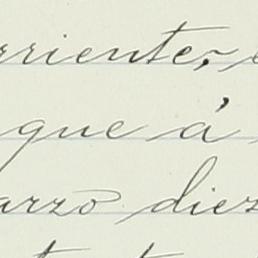 rriente,
que á
arzo diez